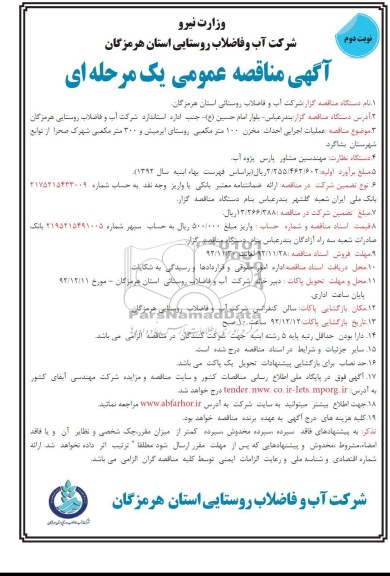 وزارت نیرو
شرکت آب وفاضلاب روستایی استان هرمزگان
نوبت دوم
آگهی مناقصه عمومی یک مرحله ای
۱.نام دستگاه مناقصه گزار:شرکت آب و فاضلاب روستائی استان هرمزگان.
۲.آدرس دستگاه مناقصه گزار:بندرعباس- بلوار امام حسین (ع)- جنب اداره استاندارد شرکت آب و فاضلاب روستایی هرمزگان
۳.موضوع مناقصه :عملیات اجرایی احداث مخزن ۱۰۰ متر مکعبی روستای ایرمیش و ۳۰۰ متر مکعبی شهرک صحرا از توابع
شهرستان بشاگرد.
۴.دستگاه نظارت: مهندسین مشاور پارس پژوه آب.
۵.مبلغ برآورد اولیه:۲/۲۵۵/۴۶۲/۶۰۲ریال(براساس فهرست بهاء ابنیه سال ۱۳۹۲).
۶. نوع تضمین شرکت در مناقصه: ارائه ضمانتنامه معتبر بانکی یا واریز وجه نقد به حساب شماره ۲۱۷۵۲۱۵۴۳۳۰۰۹
بانک ملی ایران شعبه گلشهر بندرعباس بنام دستگاه مناقصه گزار.
۷.مبلغ تضمین شرکت در مناقصه:۱۱۳/۲۶۶/۳۸۸ریال.
۸.قیمت اسناد مناقصه و شماره حساب : واریز مبلغ ۵۰۰/۰۰۰ ریال به حساب سپهر شماره ۲۱۹۵۲۱۵۴۹۱۰۰۵ بانک
صادرات شعبه سه راه آزادگان بندرعباس بنام دستگاه مناقصه گزار.
۹.مهلت فروش اسناد مناقصه:۹۲/۱۱/۲۸
۱۰.محل دریافت اسناد مناقصه:اداره امور حقوقی و قراردادها و رسیدگی به شکایات
۱۱.محل و مهلت تحویل پاکات : دبیرخانه شرکت آب و فاضلاب روستائی استان هرمزگان - مورخ ۹۲/۱۲/۱۱
پایان ساعت اداری.
۱۲.مکان بازگشایی پاکات: سالن کنفرانس شرکت آب و فاضلاب روستایی هرمزگان.
۱۳.تاریخ بازگشایی پاکات:۹۲/۱۲/۱۲ ساعت ۱۰ صبح
۱۴. دارا بودن حداقل رتبه پایه ۵ رشته ابنیه جهت شرکت کنندگان در مناقصه الزامی می باشد.
۱۵. سایر جزئیات و شرایط در اسناد مناقصه درج شده است.
۱۶.حد نصاب برای بازگشایی پیشنهادات تحویل یک پاکت می باشد.
۱۷. آگهی فوق در پایگاه ملی اطلاع رسانی مناقصات کشور و سایت مناقصه و مزایده شرکت مهندسی آبفای کشور
به آدرس: tender.nww.co.ir-Iets.mporg.ir درج خواهد شد.
۱۸.جهت اطلاع بیشتر میتوانید به سایت شرکت به آدرس www.abfarhor.ir مراجعه نمائید.
۱۹.کلیه هزینه های درج آگهی به عهده برنده مناقصه خواهد بود.
تذکر: به پیشنهادهای فاقد سپرده ،سپرده مخدوش ،سپرده کمتر از میزان مقرر،چک شخصی و نظایر آن و یا فاقد
امضاء،مشروط ،مخدوش و پیشنهادهایی که پس از مهلت مقرر ارسال شود مطلقا" ترتیب اثر داده نخواهد شد. ارائه
شماره اقتصادی و شناسه ملی و رعایت الزامات ایمنی توسط کلیه مناقصه گران الزامی می باشد.
شرکت آب و فاضلاب روستایی استان هرمزگان
ParsNamadData